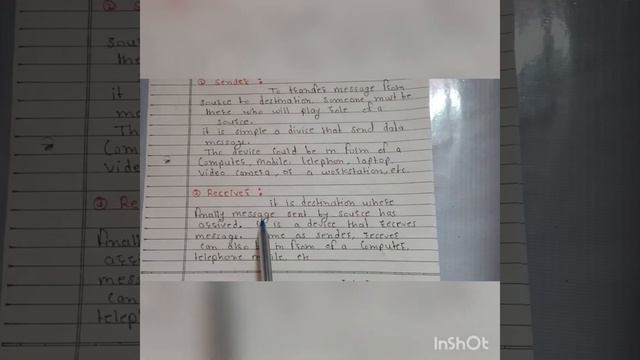 ② Sender :
To tranfer message from
source to destination someone must be
there who will play role of a
source.
it is simple a divice that send data
message.
The device could be in form of a
Computer, mobile, telephon, laptop,
video camera, or a workstation, etc.
③ Receiver :
it is destination where
finally message sent by source has
arrived. it is a device that receves
message. same as sender, receves
can also be in from of a Computer,
telephone mobile, etc
InShOt